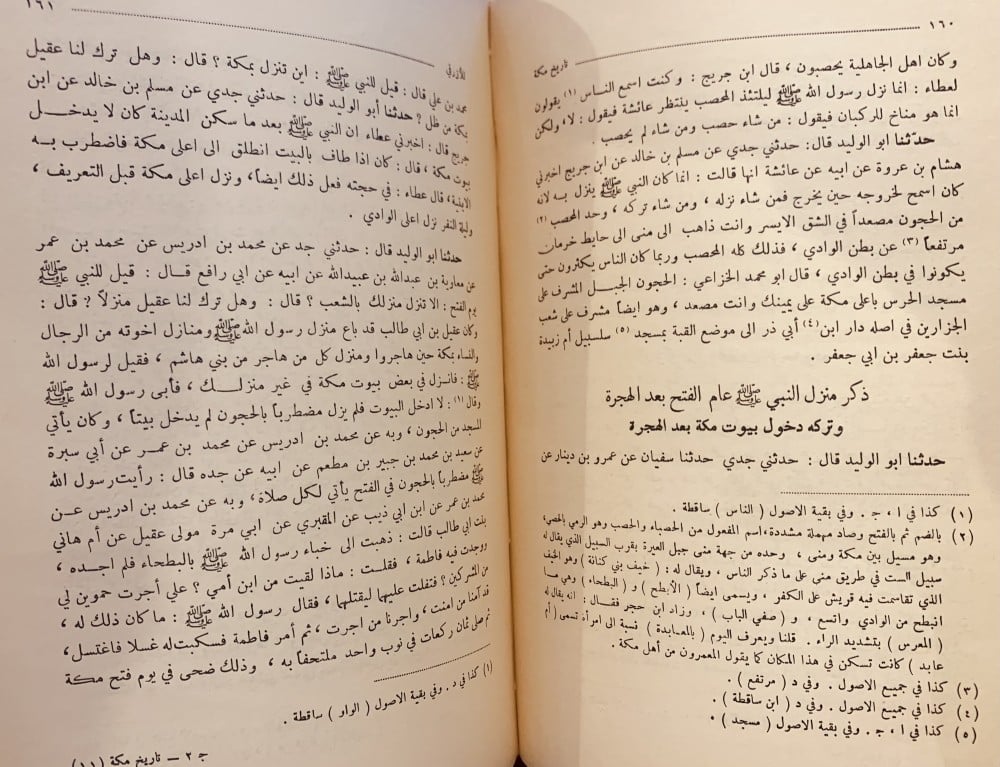 ١٦٠
تاريخ مكة
وكان اهل الجاهلية يحصبون ، قال ابن جريج : وكنت اسمع الناس (١) يقولون
لعطاء : انما نزل رسول الله ﷺ ليلتئذ المحصب ينتظر عائشة فيقول : لا ، ولكن
انما هو مناخ للركبان فيقول : من شاء حصب ومن شاء لم يحصب .
حدثنا ابو الوليد قال : حدثني جدي عن مسلم بن خالد عن ابن جريج اخبرني
هشام بن عروة عن ابيه عن عائشة انها قالت : انما كان النبي ﷺ ينزل به لانه
كان اسمح لخروجه حين يخرج فمن شاء نزله ، ومن شاء تركه ، وحد المحصب (٢)
من الحجون مصعداً في الشق الايسر وانت ذاهب الى منى الى حايط خرمان
مرتفعاً (٣) عن بطن الوادي ، فذلك كله المحصب وربما كان الناس يكثرون حتى
يكونوا في بطن الوادي ، قال ابو محمد الخزاعي : الحجون الجبل المشرف على
مسجد الحرس باعلى مكة على يمينك وانت مصعد ، وهو ايضاً مشرف على شعب
الجزارين في اصله دار ابن (٤) أبي ذر الى موضع القبة بمسجد (٥) سلسبيل أم زبيدة
بنت جعفر بن ابي جعفر .
ذكر منزل النبي ﷺ عام الفتح بعد الهجرة
وتركه دخول بيوت مكة بعد الهجرة
حدثنا ابو الوليد قال : حدثني جدي حدثنا سفيان عن عمرو بن دينار عن
(١) كذا في ا ، ج . وفي بقية الاصول ( الناس ) ساقطة .
(٢) بالضم ثم بالفتح وصاد مهملة مشددة،اسم المفعول من الحصباء والحصب وهو الرمي بالحصى،
وهو مسيل بين مكة ومنى ، وحده من جهة منى جبل العيرة بقرب السبيل الذي يقال له
سبيل الست في طريق منى على ما ذكر الناس ، ويقال له : ( خيف بني كنانة ) وهو الخيف
الذي تقاسمت فيه قريش على الكفر ، ويسمى ايضاً ( الأبطح ) و ( البطحاء ) وهي ما
انبطح من الوادي واتسع ، و ( صفي الباب ) ، وزاد ابن حجر فقال : انه يقال له
( المعرس ) بتشديد الراء . قلنا ويعرف اليوم ( بالمعابدة ) نسبة الى امرأة تسمى ( أم
عابد ) كانت تسكن في هذا المكان كما يقول المعمرون من أهل مكة .
(٣) كذا في جميع الاصول . وفي د ( مرتفع ) .
(٤) كذا في جميع الاصول . وفي د ( ابن ساقطة ) .
(٥) كذا في ا ، ج . وفي بقية الاصول ( مسجد ) .
١٦١
للأزرقي
محمد بن علي قال : قيل للنبي ﷺ : اين تنزل بمكة ؟ قال : وهل ترك لنا عقيل
بمكة من ظل ? حدثنا أبو الوليد قال : حدثني جدي عن مسلم بن خالد عن ابن
جريج قال : اخبرني عطاء ان النبي ﷺ بعد ما سكن المدينة كان لا يدخل
بيوت مكة ، قال : كان اذا طاف بالبيت انطلق الى اعلى مكة فاضطرب به
الابنية، قال عطاء : في حجته فعل ذلك ايضاً، ونزل اعلى مكة قبل التعريف ،
وليلة النفر نزل اعلى الوادي .
حدثنا ابو الوليد قال : حدثني جد عن محمد بن ادريس عن محمد بن عمر
عن معاوية بن عبدالله بن عبيدالله عن ابيه عن ابي رافع قال : قيل للنبي ﷺ
يوم الفتح : الا تنزل منزلك بالشعب ؟ قال : وهل ترك لنا عقيل منزلاً ? قال :
وكان عقيل بن ابي طالب قد باع منزل رسول الله ﷺ ومنازل اخوته من الرجال
والنساء بمكة حين هاجروا ومنزل كل من هاجر من بني هاشم ، فقيل لرسول الله
ﷺ : فانزل في بعض بيوت مكة في غير منزلك ، فأبى رسول الله ﷺ
وقال (١) : لا ادخل البيوت فلم يزل مضطرباً بالحجون لم يدخل بيتاً ، وكان يأتي
المسجد من الحجون ، وبه عن محمد بن ادريس عن محمد بن عمر عن أبي سبرة
عن سعيد بن محمد بن جبير بن مطعم عن ابيه عن جده قال : رأيت رسول الله
ﷺ مضطرباً بالحجون في الفتح يأتي لكل صلاة، وبه عن محمد بن ادريس عن
محمد بن عمر عن ابن ابي ذيب عن المقبري عن ابي مرة مولى عقيل عن أم هاني
بنت ابي طالب قالت : ذهبت الى خباء رسول الله ﷺ بالبطحاء فلم اجده ،
ووجدت فيه فاطمة ، فقلت : ماذا لقيت من ابن أمي ؟ علي أجرت حموين لي
من الشركين ؟ فتفلت عليها ليقتلهما ، فقال رسول الله ﷺ : ما كان ذلك له ،
قد آمنا من امنت ، واجرنا من اجرت ، ثم أمر فاطمة فسكبت له غسلا فاغتسل ،
ثم صلى ثمان ركعات في ثوب واحد ملتحفاً به ، وذلك ضحى في يوم فتح مكة
(١) كذا في د . وفي بقية الاصول ( الواو ) ساقطة .
ج ٢ — تاريخ مكة (١١)